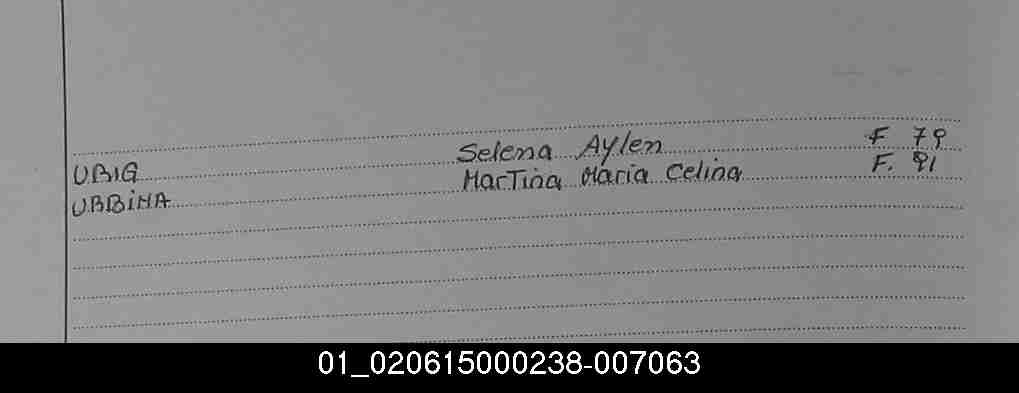 UBIG Selena Aylen F 79
URBINA Martina Maria Celina F. 91
01_020615000238-007063